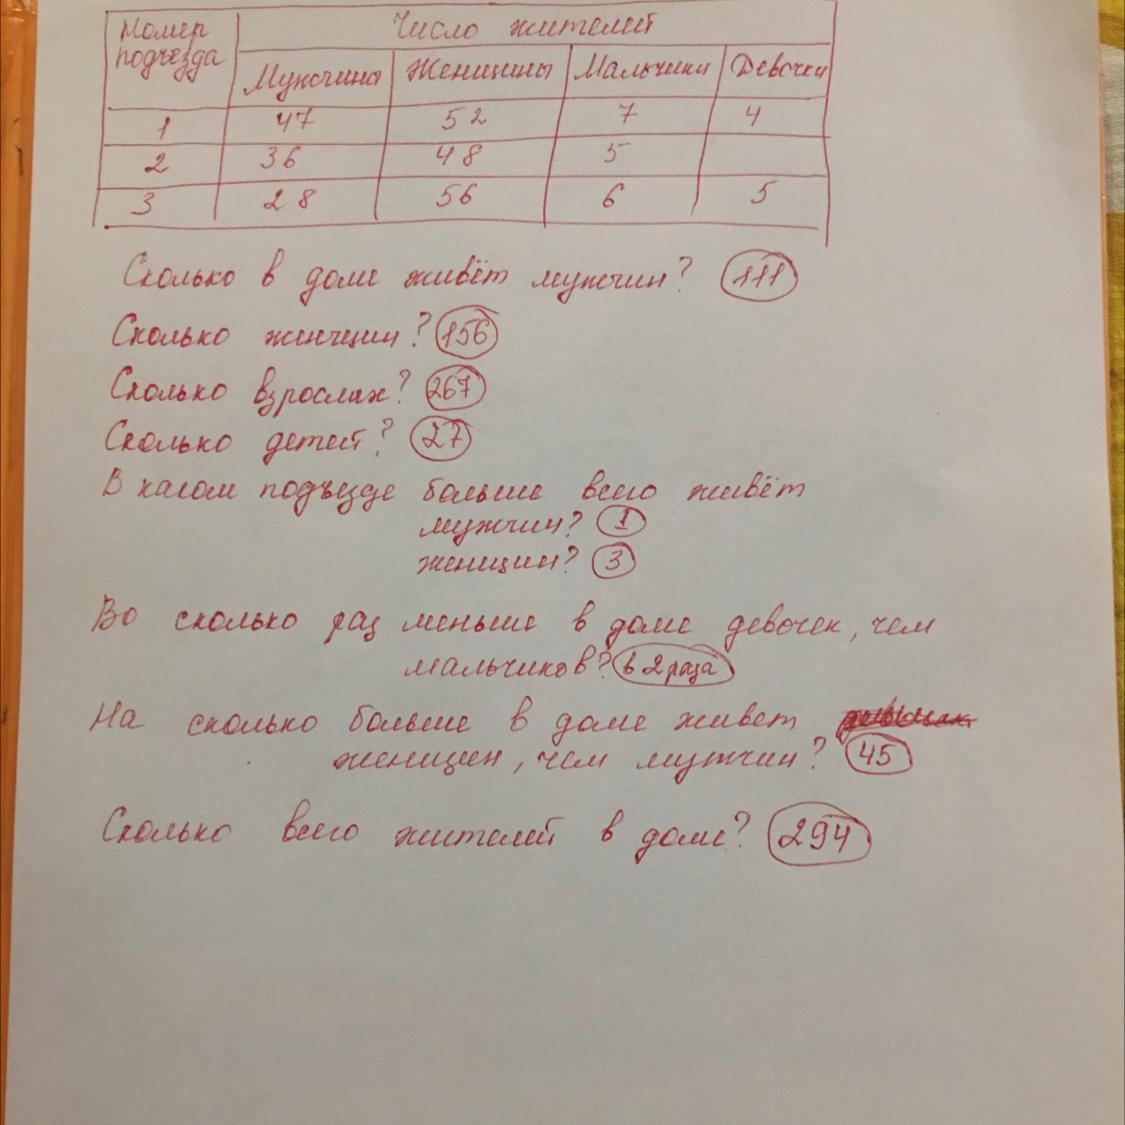 Номер подъезда Число жителей
Мужчины Женщины Мальчики Девочки
1 47 52 7 4
2 36 48 5
3 28 56 6 5
Сколько в доме живёт мужчин? 111
Сколько женщин? 156
Сколько взрослах? 267
Сколько детей? 27
В каком подъезде больше всего живёт
мужчин? 1
женщин? 3
Во сколько раз меньше в доме девочек, чем
мальчиков? в 2 раза
На сколько больше в доме живет
женщин, чем мужчин? 45
Сколько всего жителей в доме? 294